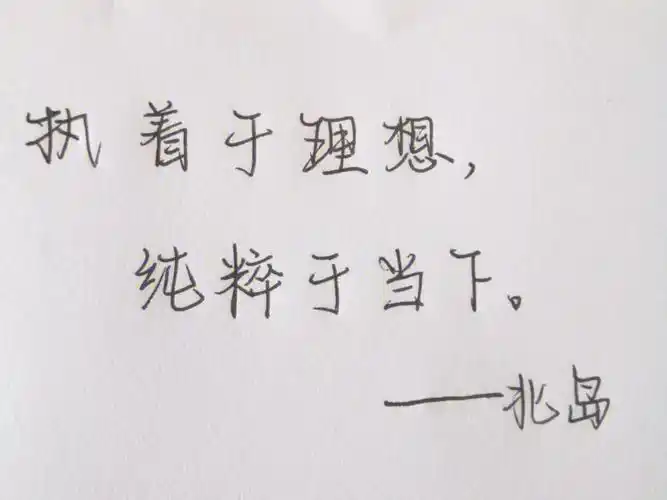 执着于理想，
纯粹于当下。
——北岛